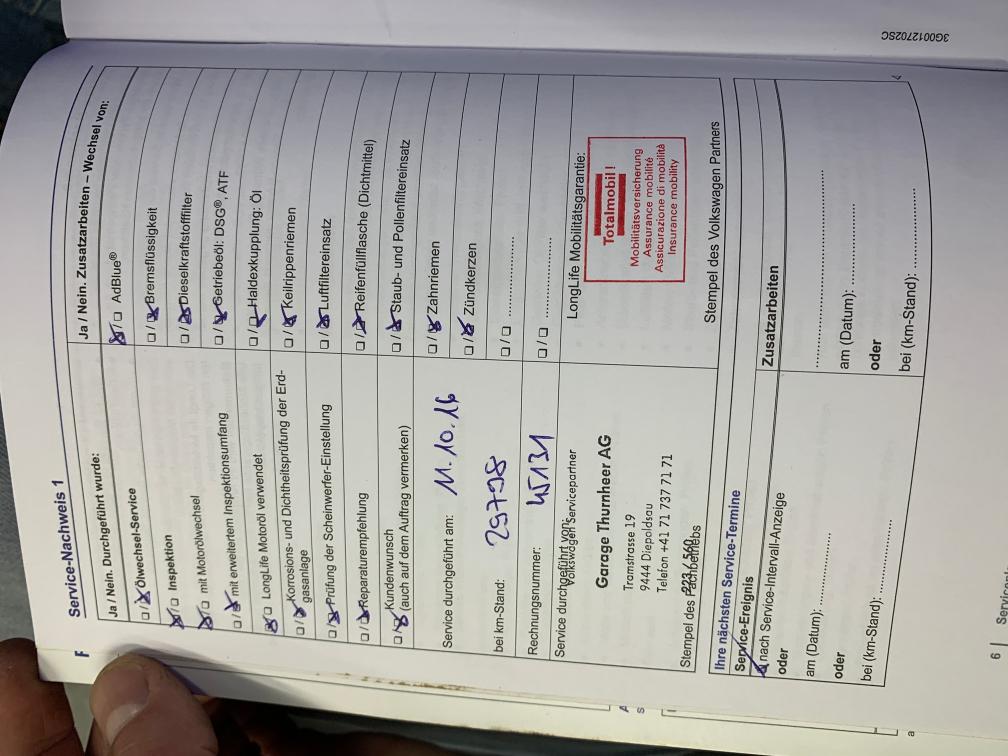 3G0012702SC
F
Service-Nachweis 1
Ja / Nein. Durchgeführt wurde:
☐/☒ Ölwechsel-Service
☒/☐ Inspektion
☒/☐ mit Motorölwechsel
☐/☒ mit erweitertem Inspektionsumfang
☒/☐ LongLife Motoröl verwendet
☐/☒ Korrosions- und Dichtheitsprüfung der Erd-
gasanlage
☐/☒ Prüfung der Scheinwerfer-Einstellung
☐/☒ Reparaturempfehlung
☐/☒ Kundenwunsch
(auch auf dem Auftrag vermerken)
Service durchgeführt am: 11.10.16
bei km-Stand: 29798
Rechnungsnummer: 45131
Service durchgeführt von:
Volkswagen Servicepartner
Garage Thurnheer AG
Tramstrasse 19
9444 Diepoldsau
Telefon +41 71 737 71 71
223 / 560
Stempel des Fachbetriebs
Ja / Nein. Zusatzarbeiten – Wechsel von:
☒/☐ AdBlue®
☐/☒ Bremsflüssigkeit
☐/☒ Dieselkraftstofffilter
☐/☒ Getriebeöl: DSG®, ATF
☐/☒ Haldexkupplung: Öl
☐/☒ Keilrippenriemen
☐/☒ Luftfiltereinsatz
☐/☒ Reifenfüllflasche (Dichtmittel)
☐/☒ Staub- und Pollenfiltereinsatz
☐/☒ Zahnriemen
☐/☒ Zündkerzen
☐/☐ ....................
☐/☐ ....................
LongLife Mobilitätsgarantie:
Totalmobil!
Mobilitätsversicherung
Assurance mobilité
Assicurazione di mobilità
Insurance mobility
Stempel des Volkswagen Partners
Ihre nächsten Service-Termine
Service-Ereignis
☒ nach Service-Intervall-Anzeige
oder
am (Datum): ....................
oder
bei (km-Stand): ....................
Zusatzarbeiten
........................................
am (Datum): ....................
oder
bei (km-Stand): ....................
6 |